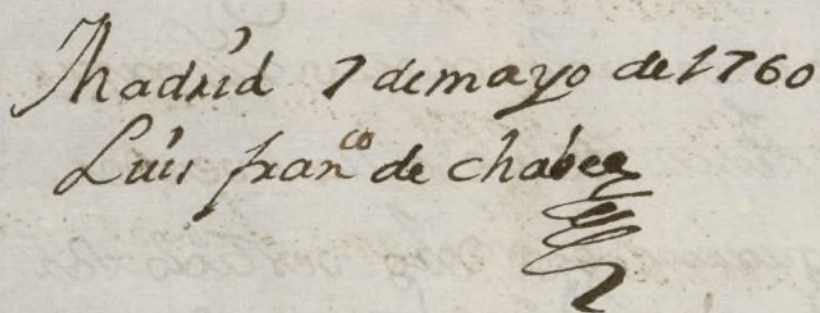 Madrid 7 de mayo de 1760
Luis fran^co de chabes